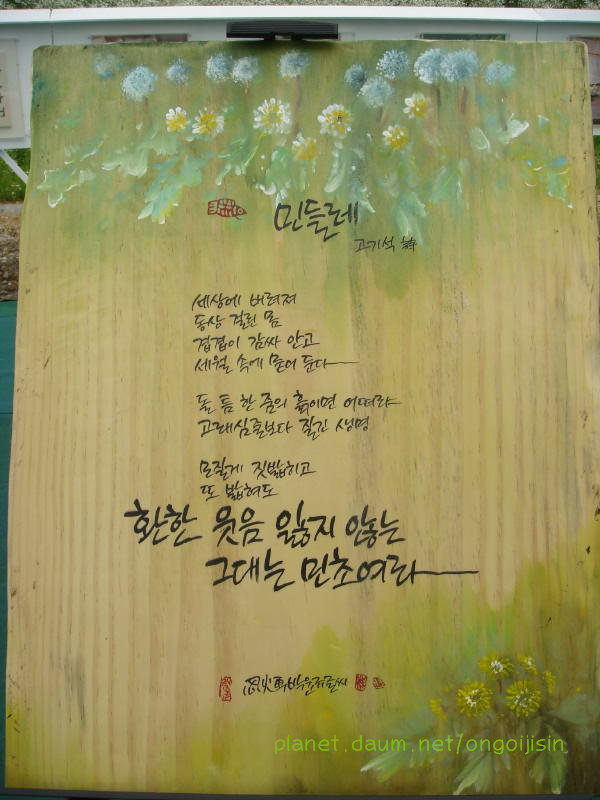 민들레
고기석 詩
세상에 버려져
동상 걸린 몸
겹겹이 감싸 안고
세월 속에 묻어 둔다
돌 틈 한 줌의 흙이면 어떠랴
고래심줄보다 질긴 생명
모질게 짓밟히고
또 밟혀도
환한 웃음 잃지 않는
그대는 민초여라
planet.daum.net/ongoijisin